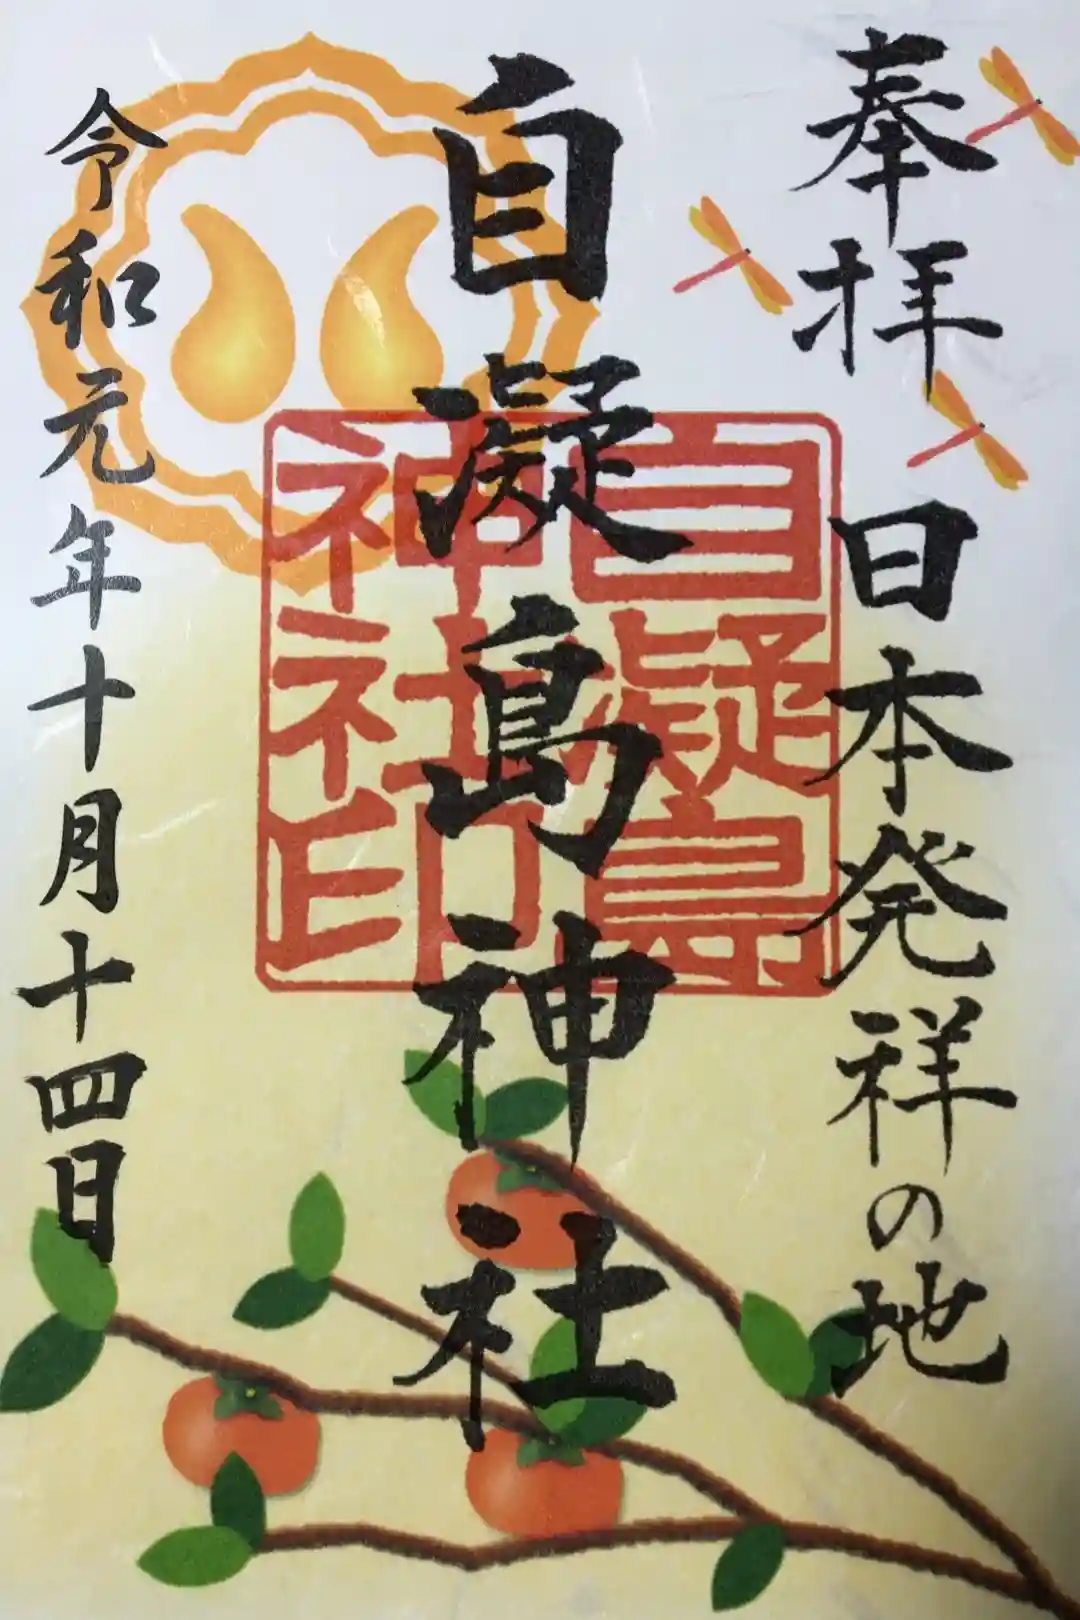 奉拝　日本発祥の地
自凝島神社
自凝島
神社印
令和元年十月十四日